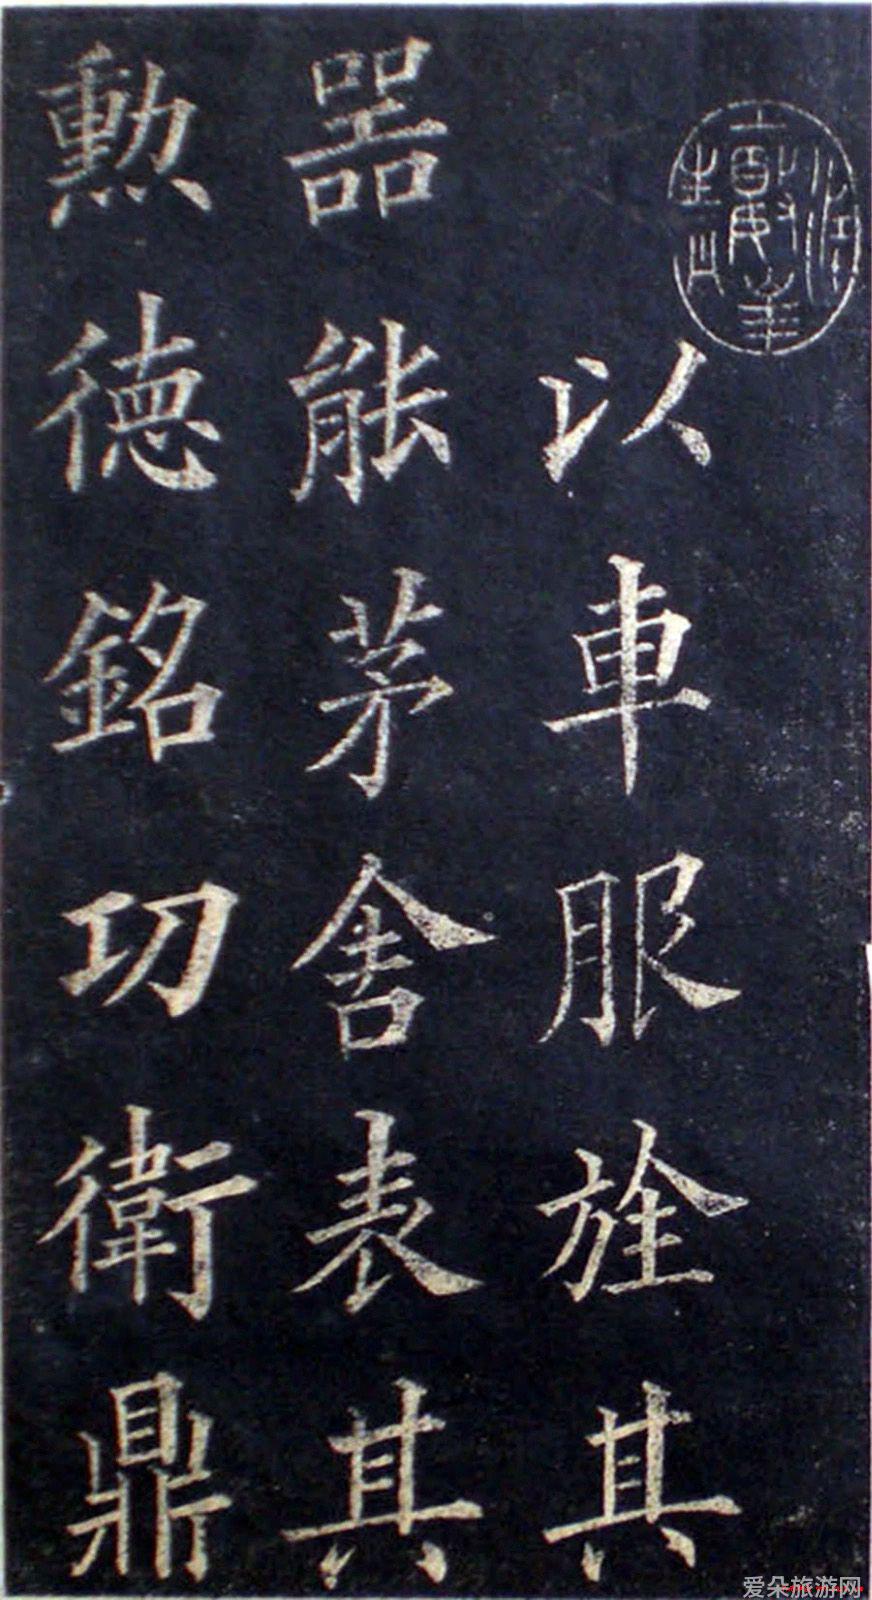 以車服旌其
器能茅舍表其
勲徳銘功衛鼎
爱朵旅游网